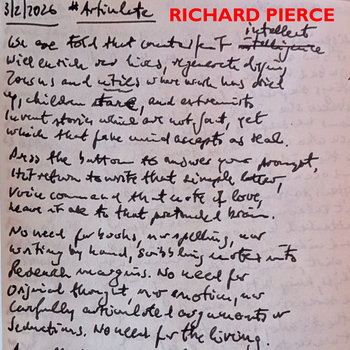 3/2/2026 #Articulate
RICHARD PIERCE
intellects
We are told that counterfeit intelligence
will enrich our lives, regenerate dying
towns and cities where work has dried
up, children starve, and extremists
invent stories which are not fact, yet
which that fake mind accepts as real.
Press the button to answer your prompt,
Hit return to write that simple letter,
Voice command that note of love,
Leave it all to that pretended brain.
No need for books, nor spelling, nor
writing by hand, scribbling notes into
Research margins. No need for
Original thought, nor emotion, nor
Carefully articulated arguments or
Seductions. No need for the living.